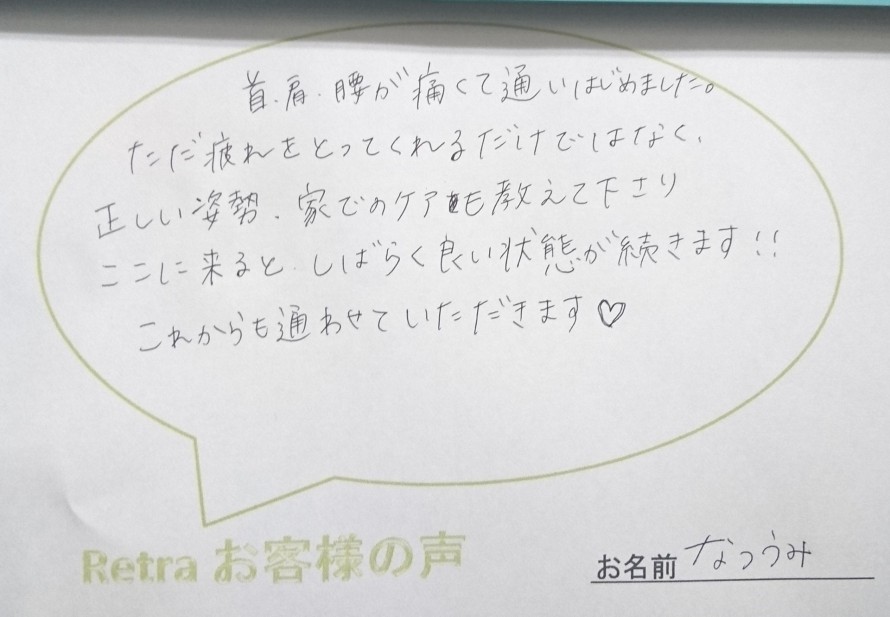 首、肩、腰が痛くて通いはじめました。
ただ疲れをとってくれるだけではなく、
正しい姿勢、家でのケアも教えて下さり
ここに来ると、しばらく良い状態が続きます!!
これからも通わせていただきます♡
Retra お客様の声
お名前 なつうみ